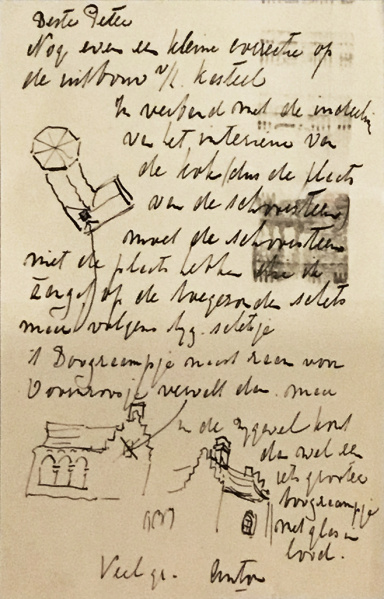 Beste Peter
Nog even een kleine correctie op
de uitbouw v/h. kasteel
In verband met de indeling
van het interieur van
de kok/dus de plaats
van de schoorsteen
moet de schoorsteen
niet de plaats hebben die de
op de toegezonden schets
maar volgens bijg. schetsje
't Boograampje naast raam van
Doornroosje vervalt dan. maar
in de zijgevel komt
dan wel een
iets grooter
boograampje
met glas in
lood.
Veel gr. Anton